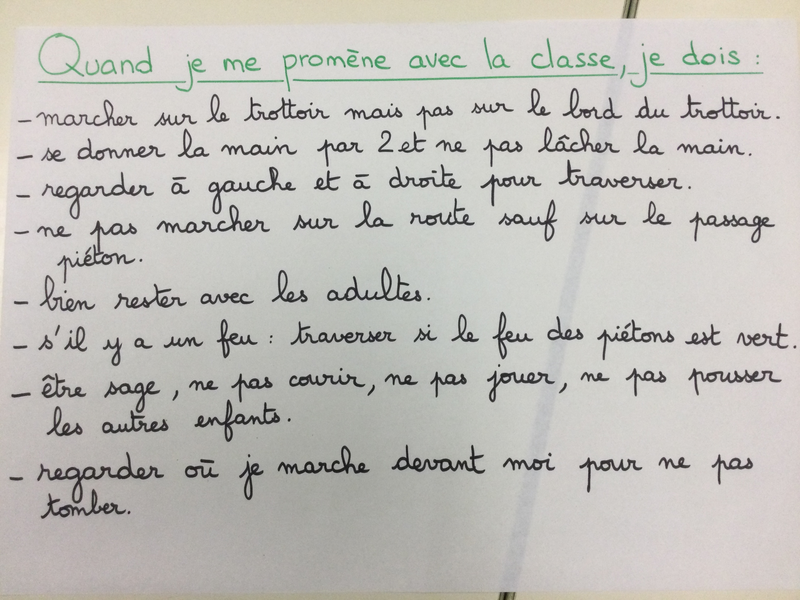 Quand je me promène avec la classe, je dois :
- marcher sur le trottoir mais pas sur le bord du trottoir.
- se donner la main par 2 et ne pas lâcher la main.
- regarder à gauche et à droite pour traverser.
- ne pas marcher sur la route sauf sur le passage
piéton.
- bien rester avec les adultes.
- s'il y a un feu : traverser si le feu des piétons est vert.
- être sage, ne pas courir, ne pas jouer, ne pas pousser
les autres enfants.
- regarder où je marche devant moi pour ne pas
tomber.